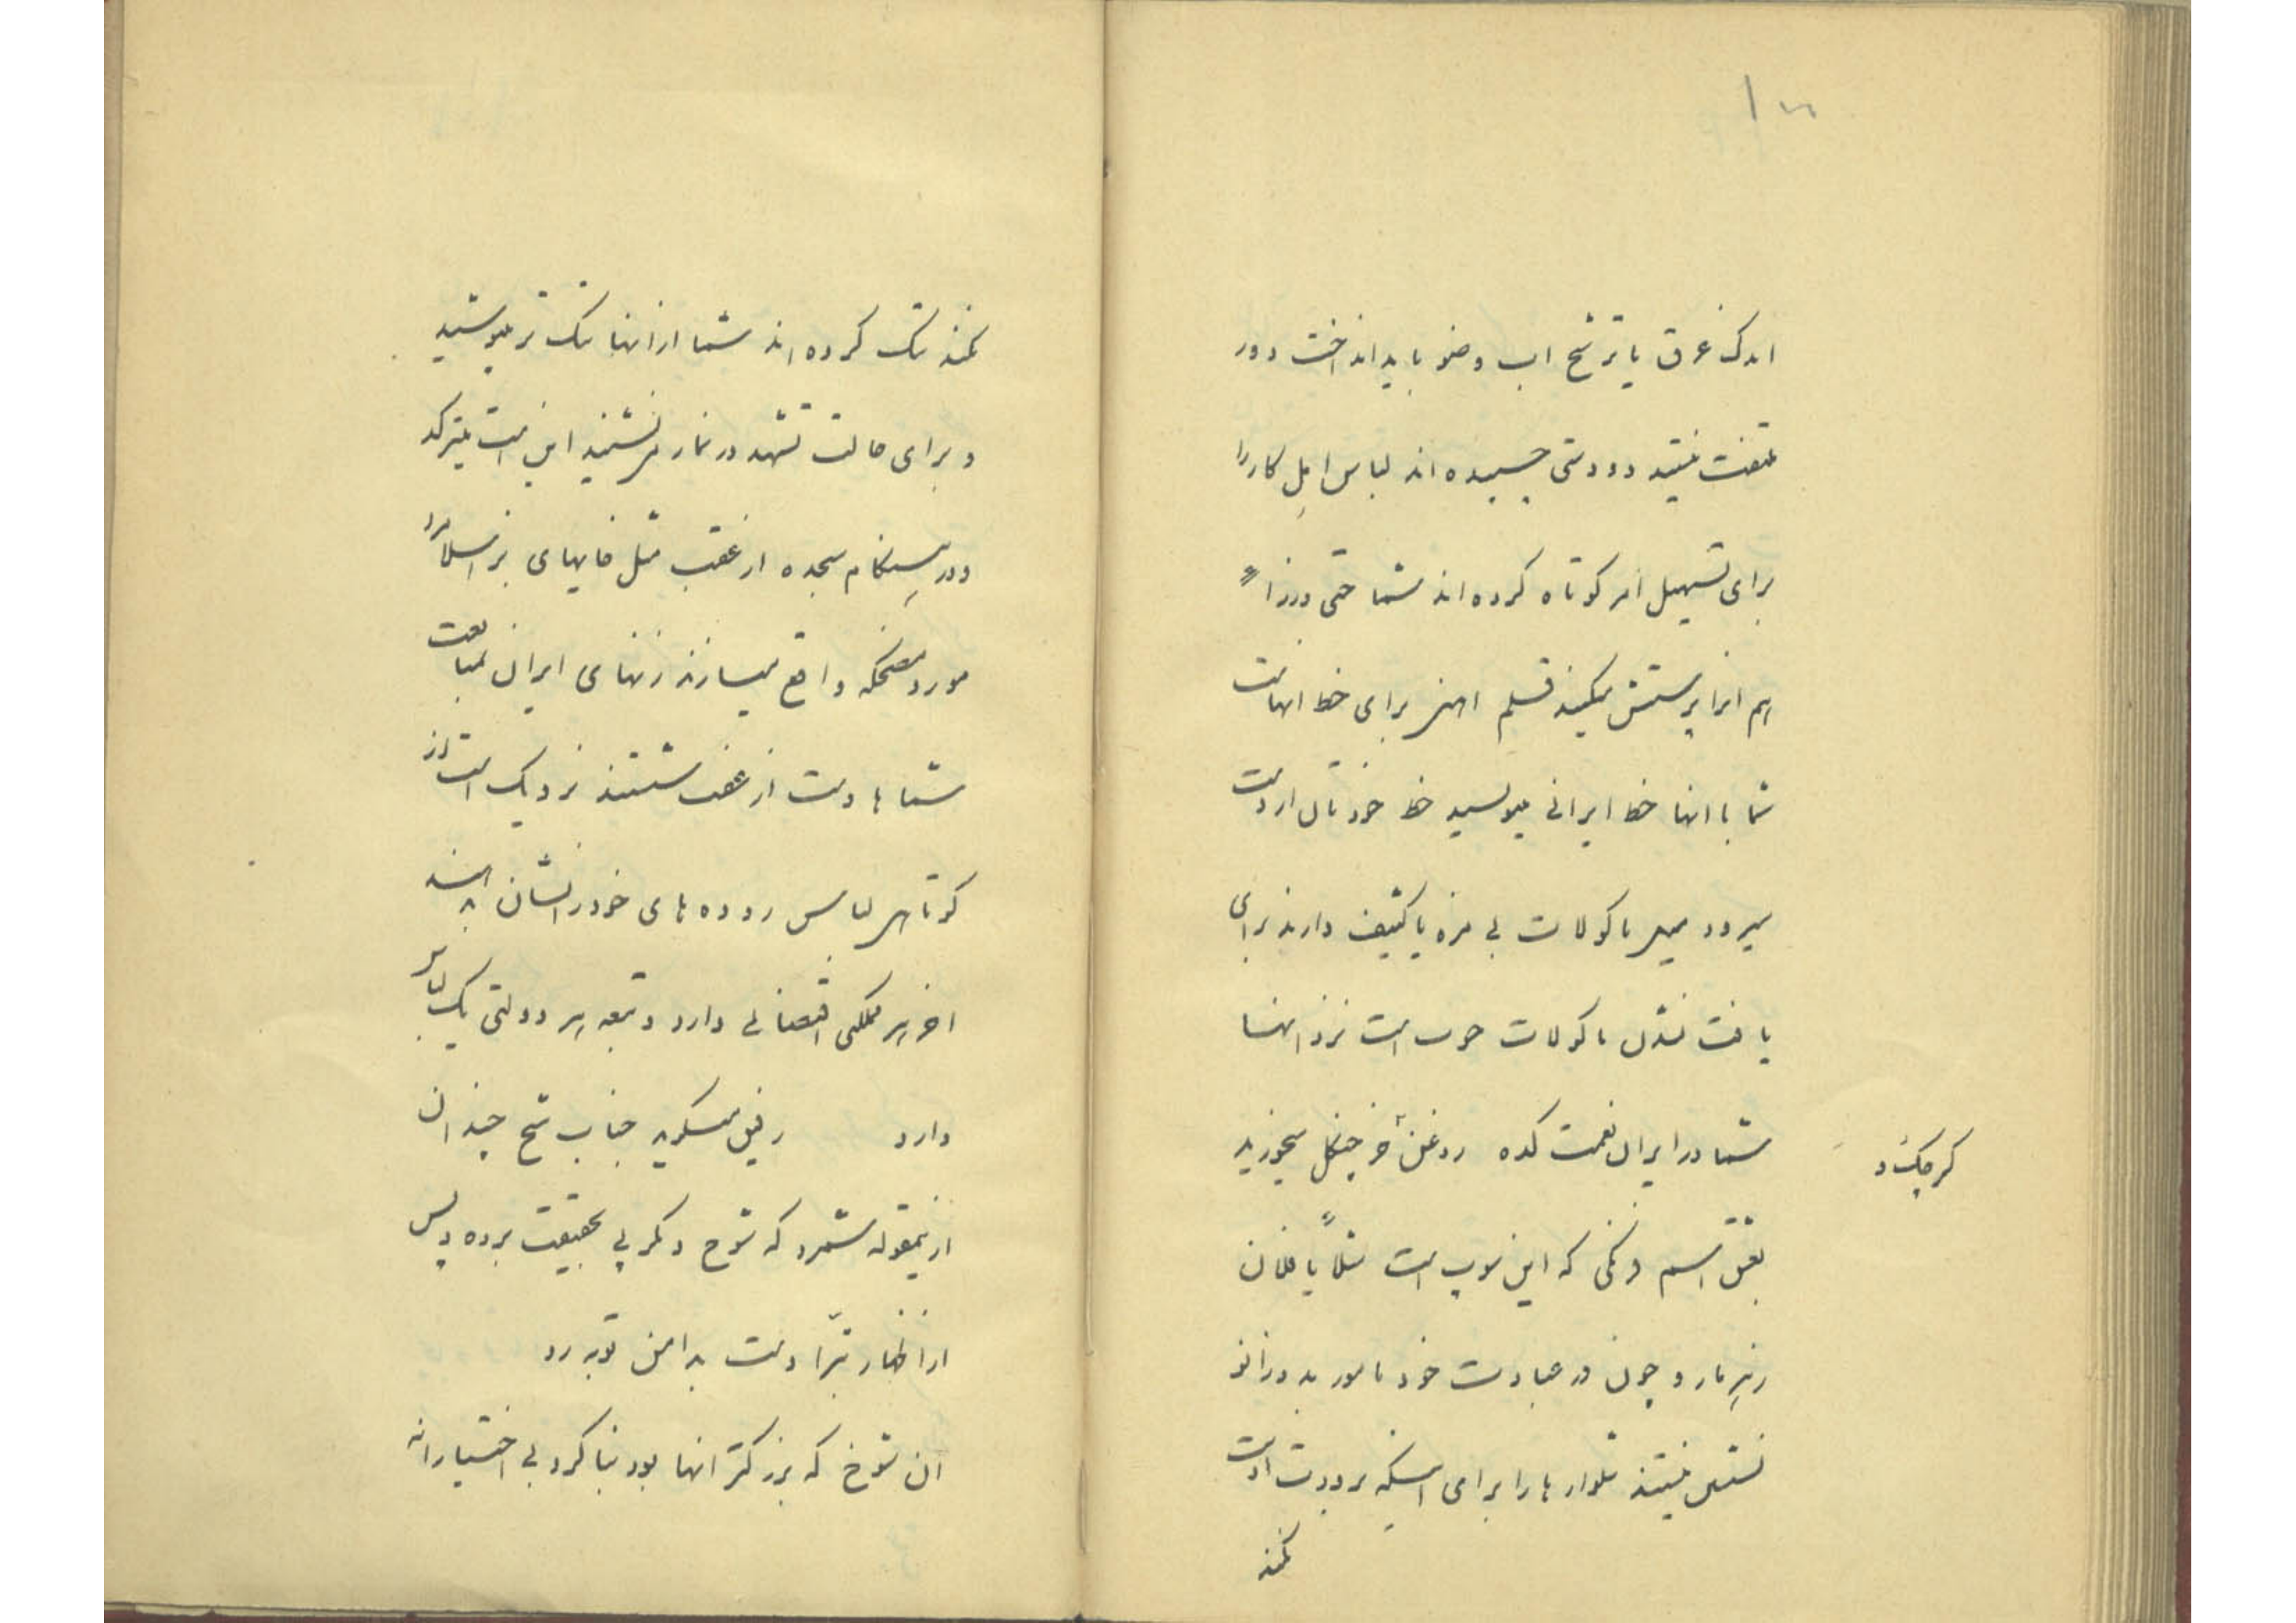 اندک عرق یا ترشح اب وضو باید انداخت دور
ملتفت نیستید دو دستی چسبیده اند لباس اهل کار را
برای تسهیل امر کوتاه کرده اند شما حتی وزرا
هم انرا پرستش میکنید قلم اهنی برای خط انهاست
شما با انها خط ایرانی مینویسید خط خودتان از دست
میرود ماکولات بی مزه یا کثیف دارند برای
یافت نشدن ماکولات خوب است نزد انها
شما در ایران نعمت کده روغن خرچنگل میخورید
کرچک و
بعشق اسم فرنگی که این سوپ است مثلاً یا فلان
زهر مار و چون در عبادت خود مامور به دو زانو
نشستن نیستند شلوار ها را برای اینکه بر دورت است
کنند
کنند تنک کرده اند شما از انها تنک تر میپوشید
و برای حالت تشهد در نماز می نشینید این است میترکد
و در هنگام سجده از عقب مثل
مورد مضحکه واقع میسازند زنهای ایران بمتابعت
شما ها دست از عفت شستند نزدیک است از
کوتاهی لباس روده های خود را نشان بدهند
اخر هر مملکتی اقتضائی دارد و تبعه هر دولتی یک لباس
دارد رفیق میگوید جناب شیخ چندان
ازینمقوله شمرد که شوخ دیگر پی بحقیقت برده و پس
از اظهار تبرّا دست بدامن توبه زد
آن شوخ که بزرگتر انها بود بنا کرد بی اختیارانه